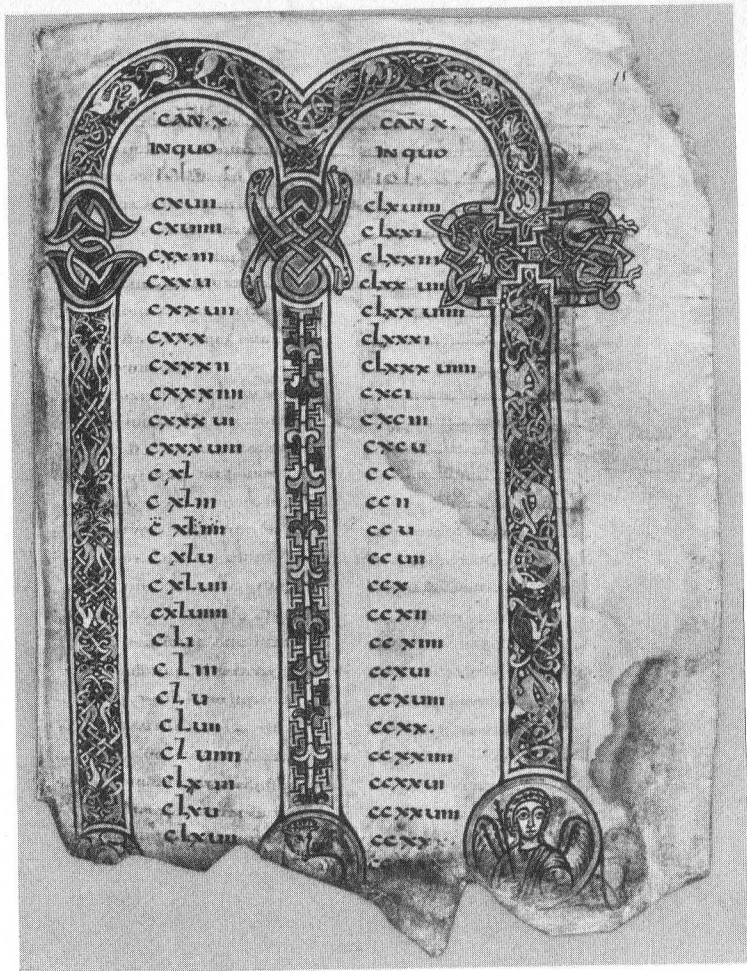 CAN̄. X
IN QUO
cxuii
cxuiiii
cxxiii
cxxu
cxxuii
cxxx
cxxxii
cxxxiiii
cxxxui
cxxxuiii
cxl
cxliii
cxliiii
cxlu
cxluii
cxluiiii
cli
cliii
clu
cluii
cluiiii
clxiii
clxu
clxuii
CAN̄ X.
IN QUO
clxuiiii
clxxi
clxxiii
clxxuii
clxxuiiii
clxxxi
clxxxuiiii
cxci
cxciii
cxcu
cc
ccii
ccu
ccuii
ccx
ccxii
ccxiiii
ccxui
ccxuiii
ccxx.
ccxxiiii
ccxxui
ccxxuiiii